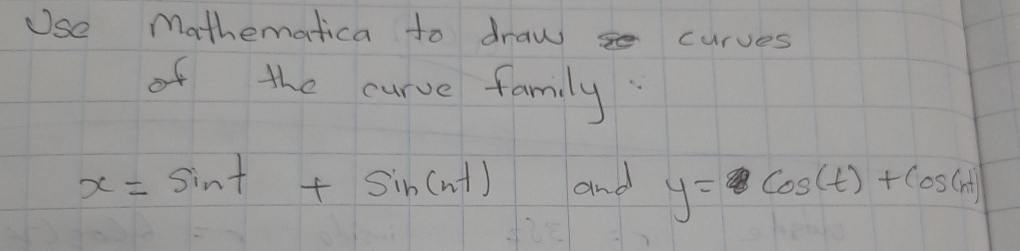 Use Mathematica to draw curves
of the curve family :
x = sint + Sin(nt) and y = Cos(t) + Cos(nt)